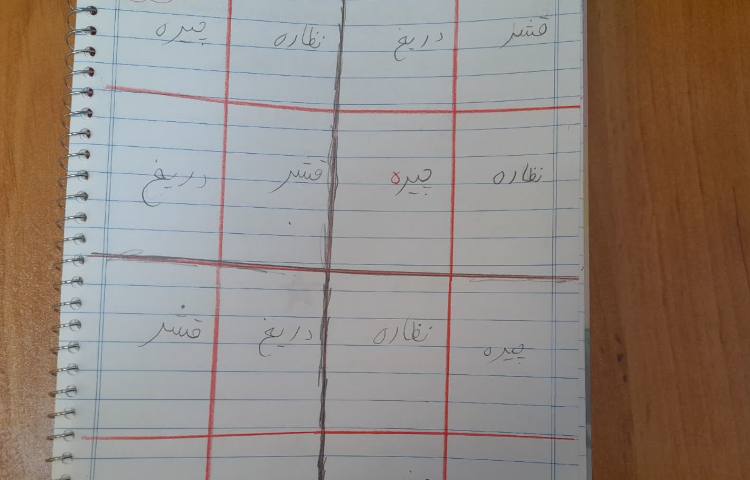 قشر دریغ نظاره چیره
نظاره چیره قشر دریغ
چیره نظاره دریغ قشر